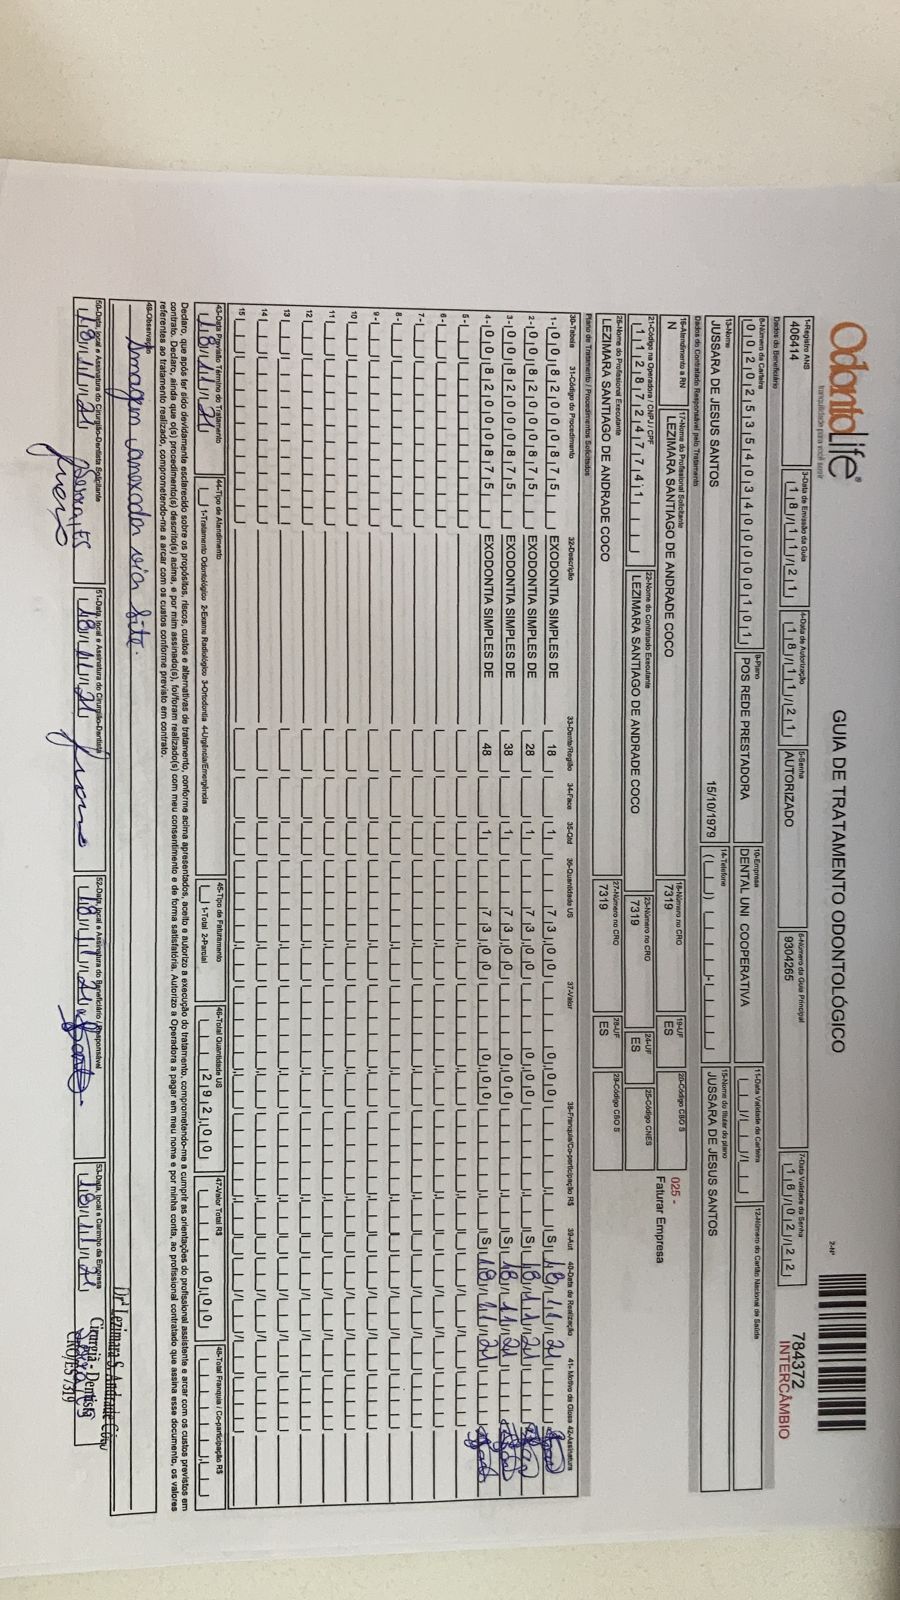 OdontoLife®
tranquilidade para você sorrir
GUIA DE TRATAMENTO ODONTOLÓGICO
2-Nº
784372
INTERCÂMBIO
1-Registro ANS
406414
3-Data de Emissão da Guia
18/11/21
4-Data de Autorização
18/11/21
5-Senha
AUTORIZADO
6-Número da Guia Principal
9304265
7-Data Validade da Senha
18/02/22
Dados do Beneficiário
8-Número da Carteira
9-Plano
POS REDE PRESTADORA
10-Empresa
DENTAL UNI COOPERATIVA
11-Data Validade da Carteira
12-Número do Cartão Nacional de Saúde
13-Nome
JUSSARA DE JESUS SANTOS
15/10/1979
14-Telefone
15-Nome do titular do plano
JUSSARA DE JESUS SANTOS
Dados do Contratado Responsável pelo Tratamento
16-Atendimento a RN
N
17-Nome do Profissional Solicitante
LEZIMARA SANTIAGO DE ANDRADE COCO
18-Número no CRO
7319
19-UF
ES
20-Código CBO S
025 -
Faturar Empresa
21-Código na Operadora / CNPJ / CPF
11287247741
22-Nome do Contratado Executante
LEZIMARA SANTIAGO DE ANDRADE COCO
23-Número no CRO
7319
24-UF
ES
25-Código CNES
26-Nome do Profissional Executante
LEZIMARA SANTIAGO DE ANDRADE COCO
27-Número no CRO
7319
28-UF
ES
29-Código CBO S
Plano de Tratamento / Procedimentos Solicitados
30-Tabela 31-Código do Procedimento 32-Descrição 33-Dente/Região 34-Face 35-Qtd 36-Quantidade US 37-Valor 38-Franquia/Co-participação R$ 39-Aut 40-Data de Realização 41- Motivo da Glosa 42-Assinatura
1- 00 82000875 EXODONTIA SIMPLES DE 18 1 73,00 0,00 S 18/11/21
2- 00 82000875 EXODONTIA SIMPLES DE 28 1 73,00 0,00 S 18/11/21
3- 00 82000875 EXODONTIA SIMPLES DE 38 1 73,00 0,00 S 18/11/21
4- 00 82000875 EXODONTIA SIMPLES DE 48 1 73,00 0,00 S 18/11/21
5-
6-
7-
8-
9-
10
11
12
13
14
15
43-Data Previsão Término do Tratamento
18/11/21
44-Tipo de Atendimento
1-Tratamento Odontológico 2-Exame Radiológico 3-Ortodontia 4-Urgência/Emergência
45-Tipo de Faturamento
1-Total 2-Parcial
46-Total Quantidade US
292,00
47-Valor Total R$
0,00
48-Total Franquia / Co-participação R$
Declaro, que após ter sido devidamente esclarecido sobre os propósitos, riscos, custos e alternativas de tratamento, conforme acima apresentados, aceito e autorizo a execução do tratamento, comprometendo-me a cumprir as orientações do profissional assistente e arcar com os custos previstos em
contrato. Declaro, ainda que o(s) procedimento(s) descrito(s) acima, e por mim assinado(s), foi/foram realizado(s) com meu consentimento e de forma satisfatória. Autorizo a Operadora a pagar em meu nome e por minha conta, ao profissional contratado que assina esse documento, os valores
referentes ao tratamento realizado, comprometendo-me a arcar com os custos conforme previsto em contrato.
49-Observação
Imagem anexada via site.
50-Data, local e Assinatura do Cirurgião-Dentista Solicitante
18/11/21
51-Data, local e Assinatura do Cirurgião-Dentista
18/11/21
52-Data, local e Assinatura do Beneficiário / Responsável
18/11/21
53-Data, local e Carimbo da Empresa
18/11/21
Drª Lezimara S. Andrade Côco
Cirurgiã - Dentista
CRO/ES 7319